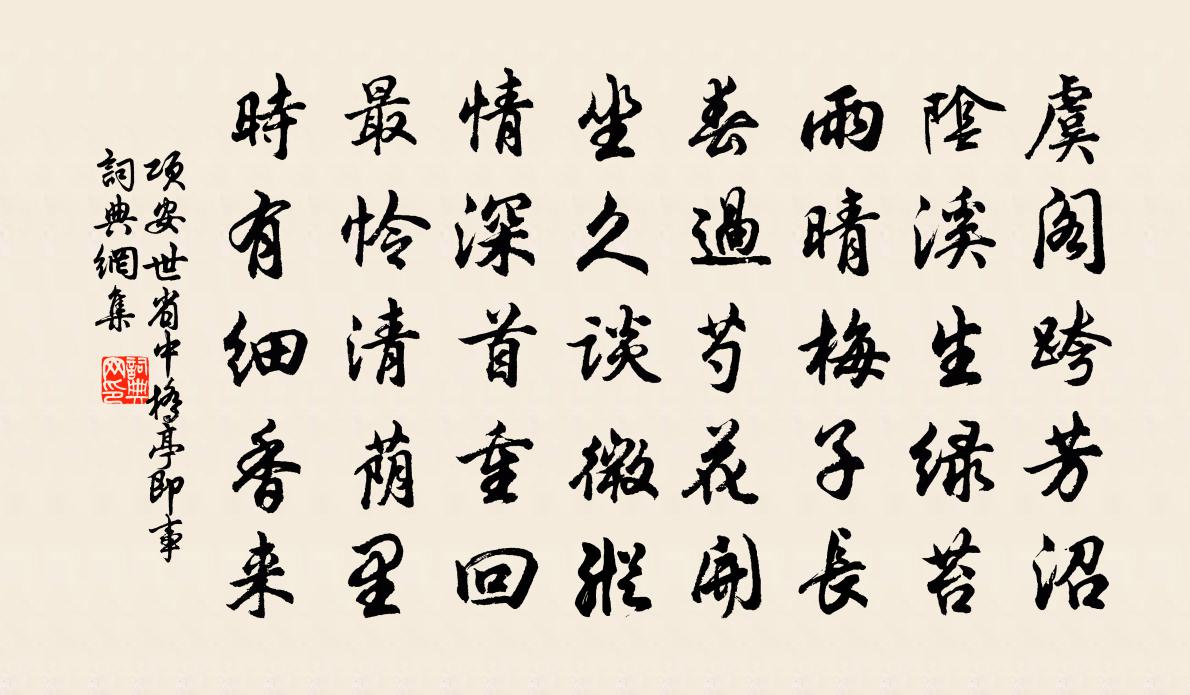 虞阁跨芳沼
陰溪生绿苔
雨晴梅子長
春過芍花開
坐久談微縱
情深首重回
最怜清荫里
時有细香来
項安世省中橋亭即事
詞典網集
詞典网印